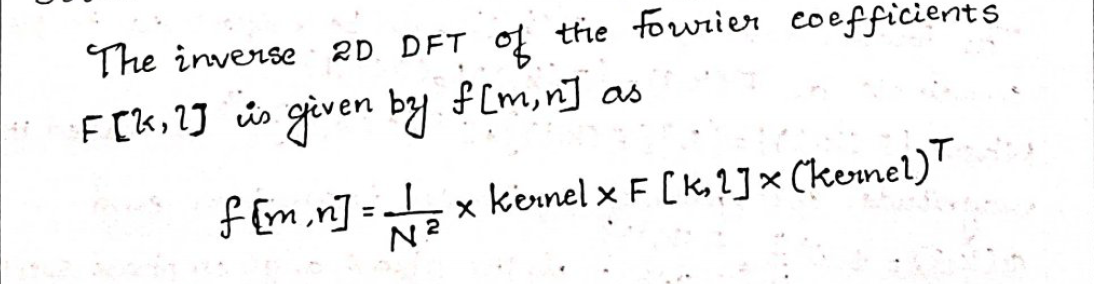 The inverse 2D DFT of the fourier coefficients
F[k,l] is given by f[m,n] as
f[m,n] = 1/N² × kernel × F[k,l] × (kernel)ᵀ